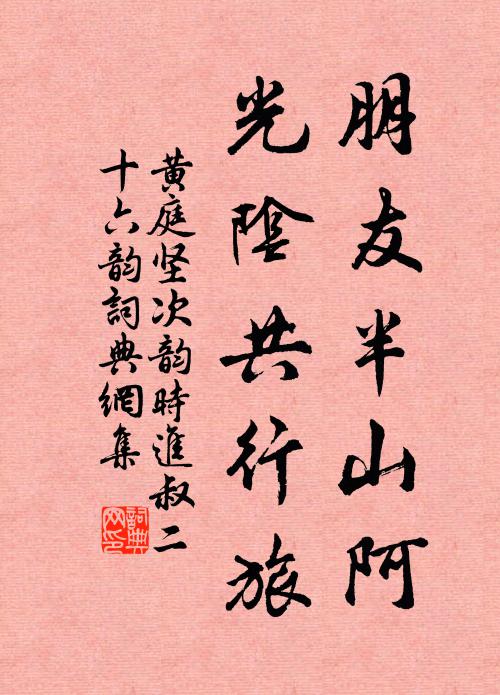 朋友半山阿
光陰共行旅
黄庭坚次韵時進叔二
十六韵詞典網集
詞典
网印